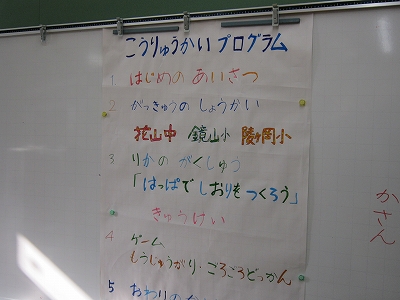 こうりゅうかい プログラム
1 はじめの あいさつ
2 がっきゅうの しょうかい
花山中 鏡山小 陵ヶ岡小
3 りかの がくしゅう
「はっぱで しおりを つくろう」
きゅうけい
4 ゲーム
もうじゅうがり、ごろごろどっかん
5 おわりの
かさん